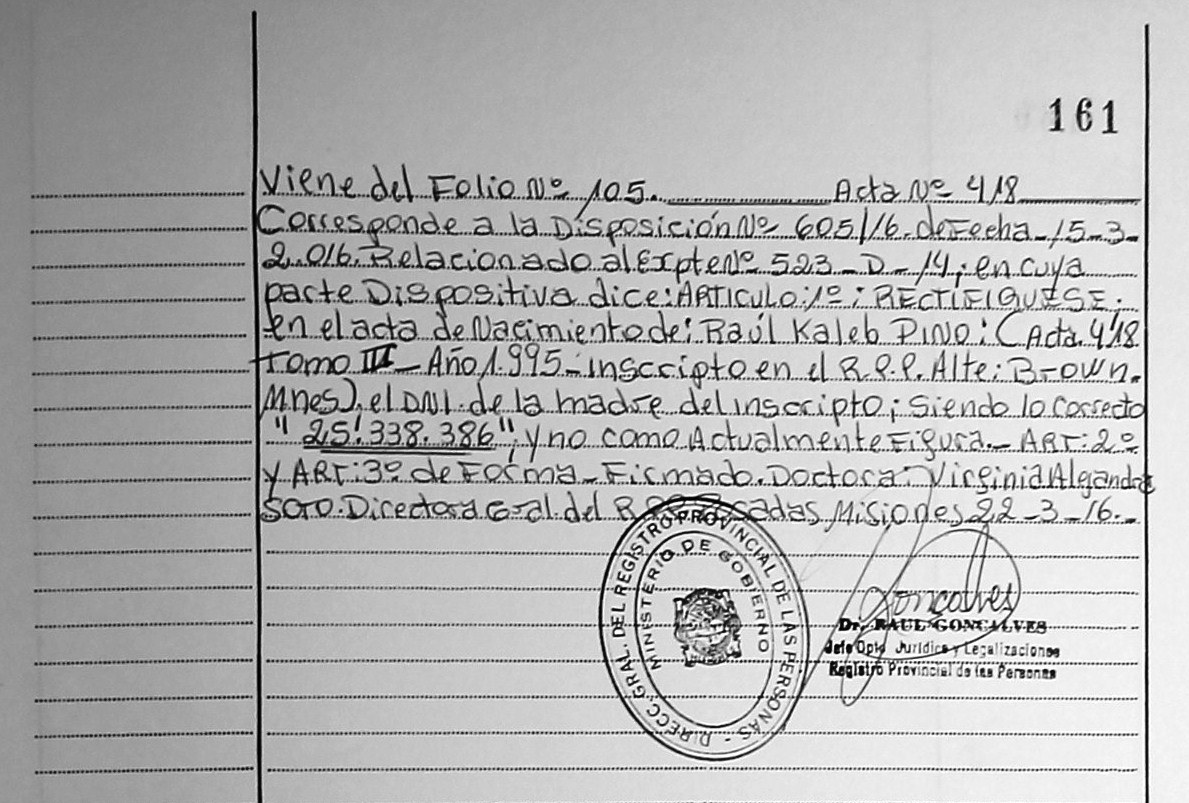 161
Viene del Folio Nº 105. Acta Nº 418
Corresponde a la Disposición Nº 605/16. de Fecha 15-3-
2.016. Relacionado al Expte Nº 523-D-14; en cuya
parte Dispositiva dice: ARTICULO: 1º: RECTIFIQUESE:
en el acta de Nacimiento de: Raúl Kaleb PINO: (Acta 418
Tomo III - Año 1.995- inscripto en el R.P.P. Alte: Brown.
Mnes), el DNI. de la madre del inscripto; siendo lo correcto
"25.338.386"; y no como Actualmente Figura.- ART: 2º
y ART: 3º de Forma- Firmado. Doctora: Virginia Alejandra
SOTO. Directora Gral. del R.P.P. Posadas, Misiones 22-3-16.-
DIRECC. GRAL. DEL REGISTRO PROVINCIAL DE LAS PERSONAS -
MINISTERIO DE GOBIERNO
Goncalves
Dr. RAUL GONCALVES
Jefe Dpto. Jurídica y Legalizaciones
Registro Provincial de las Personas